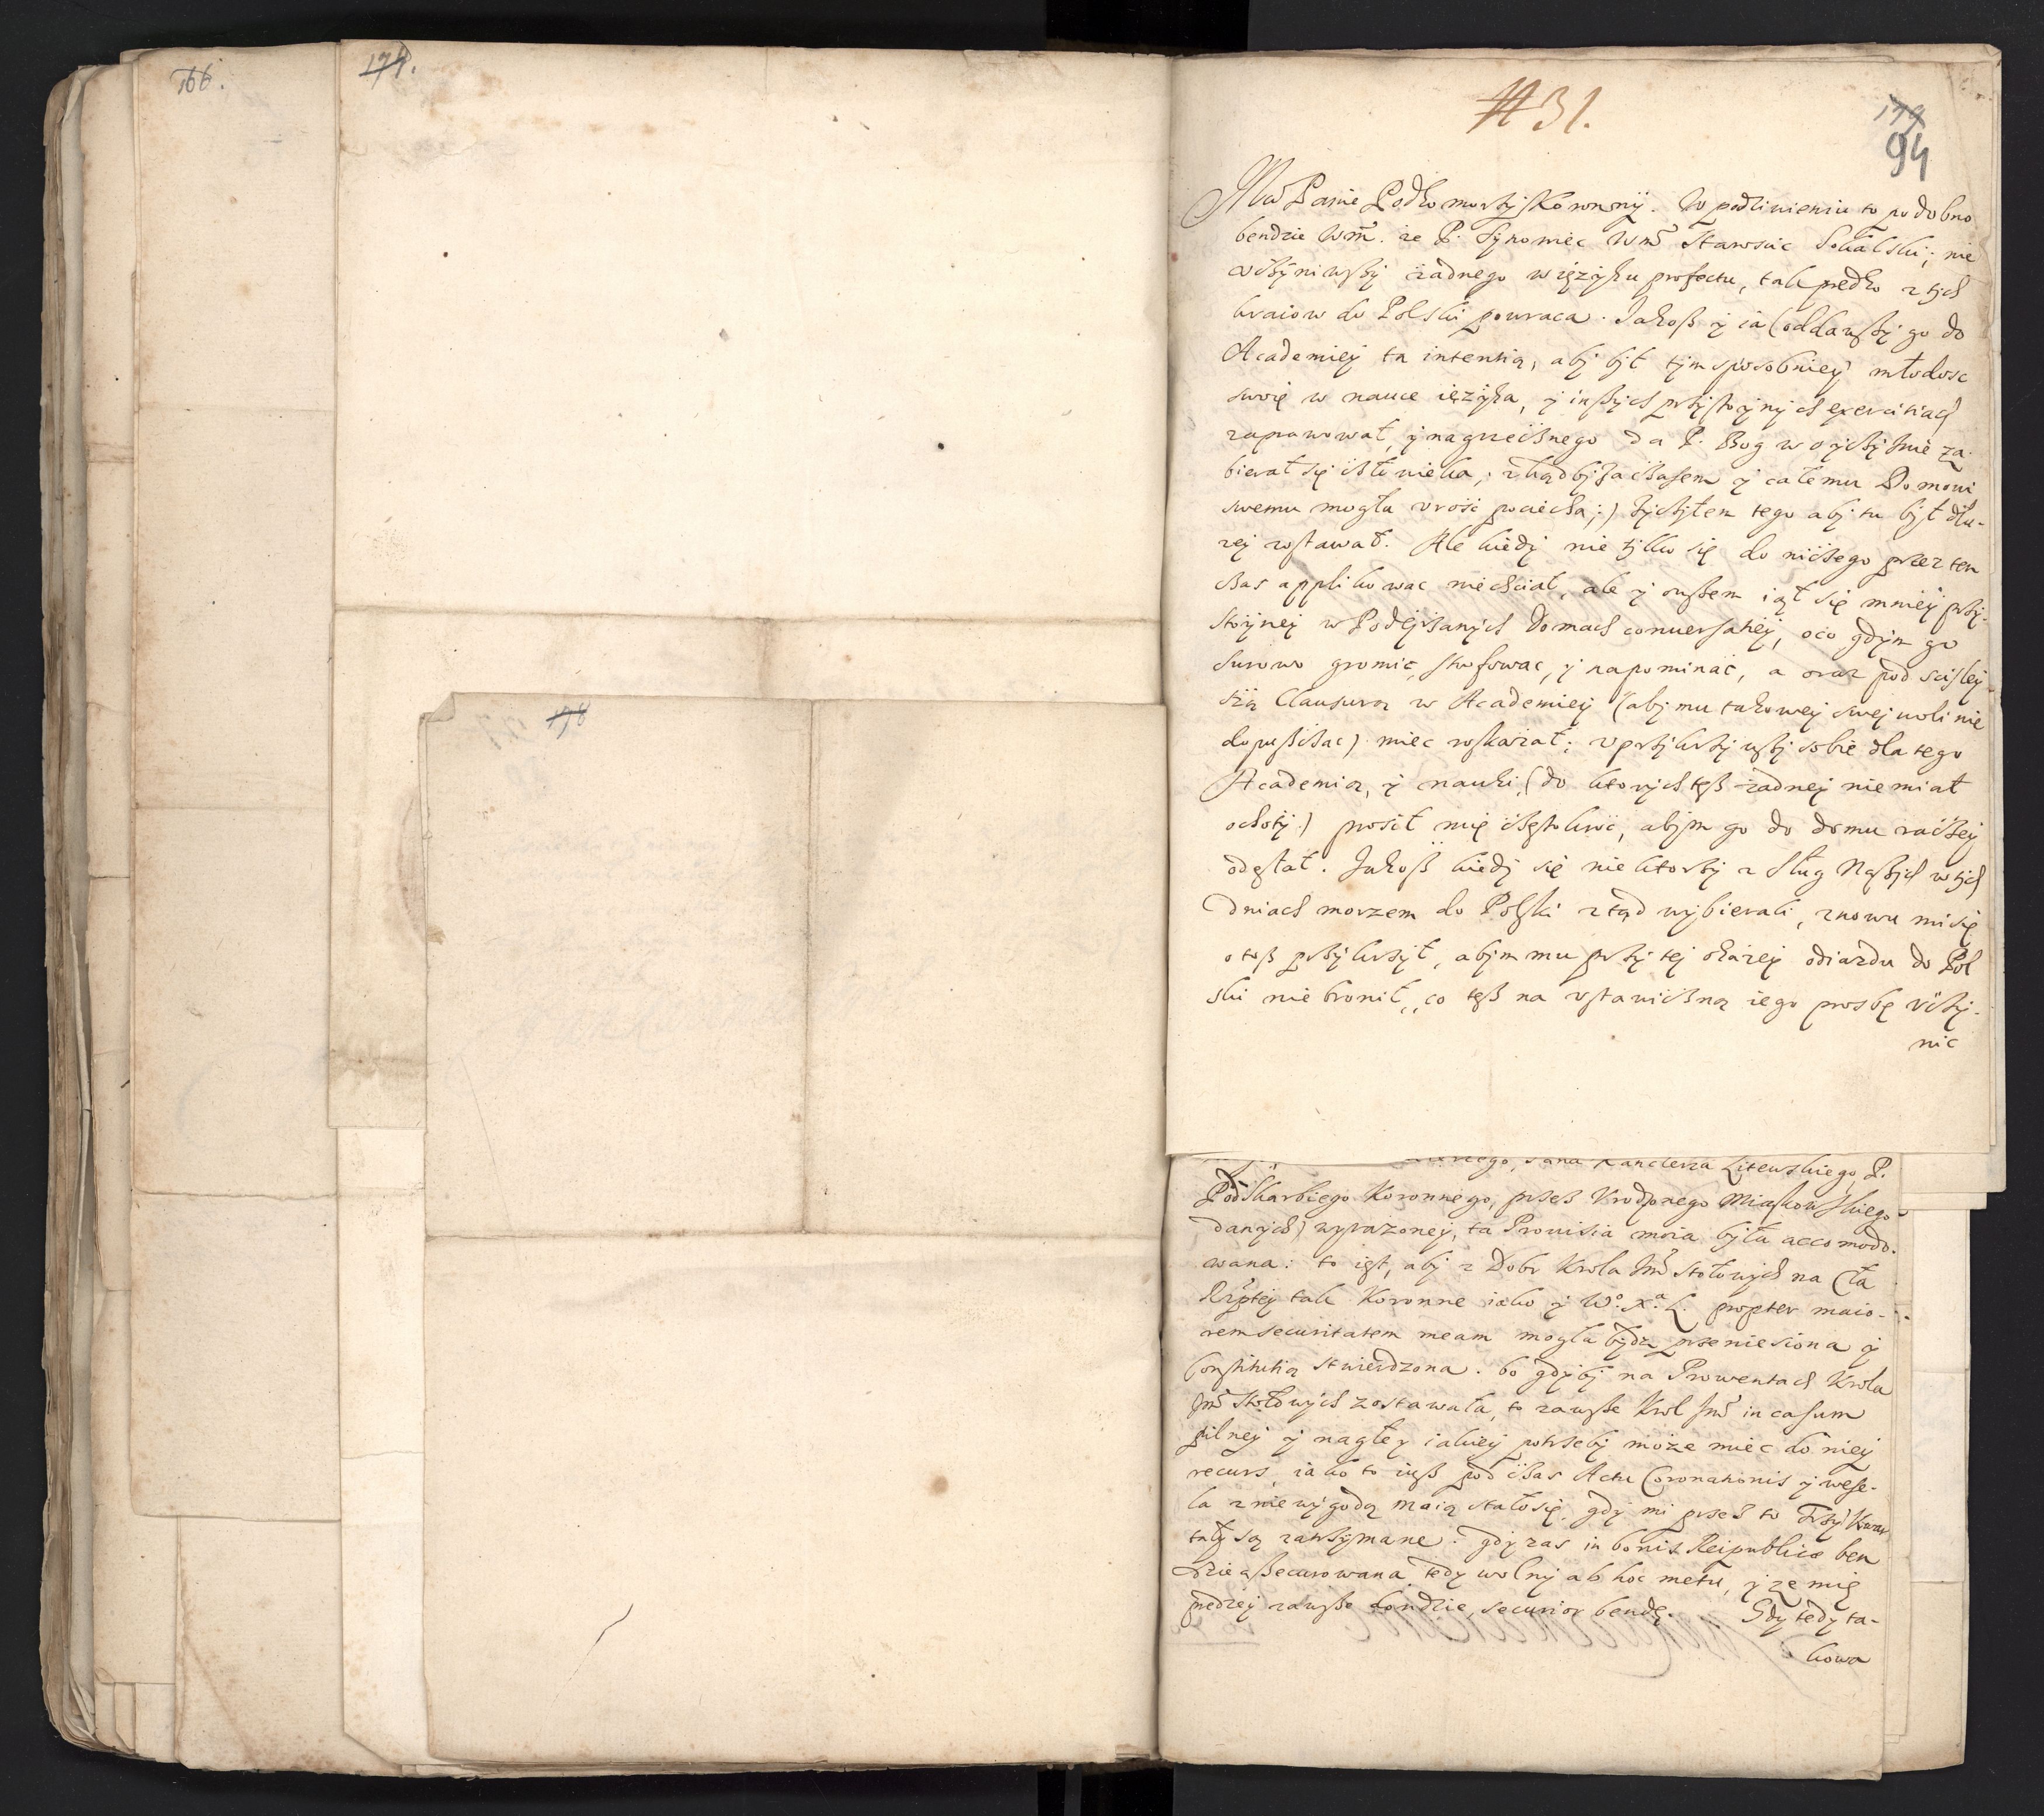 166.
174.
178
# 31.
179
94
Mći Panie Podkomorzy Koronny. W podziwieniu to podobno
bendzie Wm̃. ze P. Synowiec Wmć Starościc Sokalski, nie
vcżyniwszy żadnego w ięzyku profectu, tak prędko z tych
kraiow do Polski powraca. Jakoß y ia (oddawszy go do
Academiey tą intentią, aby był tym sposobniey młodosc
swoię w nauce ięzyka, y inßych przystoynych exercitiach
zaprawował, y na grzecżnego da P. Bog w oycżyżnie za-
bierał się cżłowieka, zkądby za cżasem y całemu Domowi
swemu mogła vrość pociecha;) życżyłem tego aby tu był dłu-
zej zostawał. Ale kiedy nie tylko się do nicżego przez ten
cżas applikowac niechciał, ale y owßem iął się mniey przy-
stoyney w Podeyrzanych Domach conuersatiey, oco gdym go
surowo gromić, strofowac, y napominać, a oraz pod scisley-
szą Clausurą w Academiey (aby mu takowey swey woli nie
dopuścżac) miec roskazał; vprzykrzywszy sobie dla tego
Academią, y nauki, (do ktorych teß żadney nie miał
ochoty) prosił mię cżęstokroć, abym go do domu racżey
odesłał. Jakoß kiedy się niektorzy z Sług Naßych w tych
dniach morzem do Polski ztąd wybierali, znowu mi się
o toß przykrzył, abym mu przy tej okazyey odiazdu do Pol
ski nie bronił, co teß na vstawicżną iego prosbę vcży-
nic
Pana Kanclerza Litewskiego, P.
Podskarbiego Koronnego, przez Vrodzonego Miaskowskiego
danych) wyrażoney, ta Prouisia moia była accomodo-
wana: to iest, aby z Dobr Krola Jmć Stołowych na Cła
Rzptey tak Koronne iako y Wº. Xª. L. propter maio-
rem securitatem meam mogla bydz przeniesiona y
Constitutią stwierdzona. bo gdyby na Prowentach Krola
Jmć Stołowych zostawała, to zawsze Krol Jmć in casum
pilney y nagłey iakiey potrzeby może miec do niey
recurs, iako to iuß pod cżas Actu Coronationis y wese-
la z niewygodą moią stało się, gdy mi przez to Trzy Kwar
tały są zatrzymane. gdy zas in bonis Reipublicæ ben
dzie aßecurowana, tedy wolny ab hoc metu, y ze mię
prędzey zawsze doydzie, securior bendę. Gdy tedy ta-
kowa